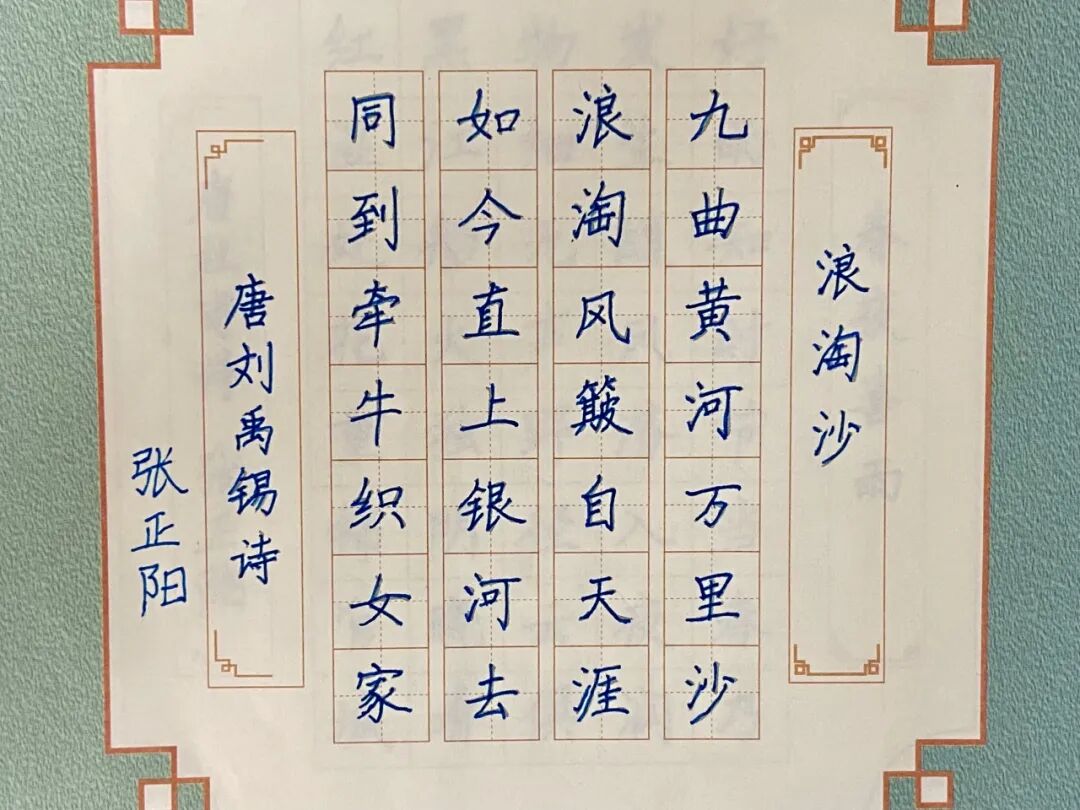 浪淘沙
九曲黄河万里沙
浪淘风簸自天涯
如今直上银河去
同到牵牛织女家
唐刘禹锡诗
张正阳